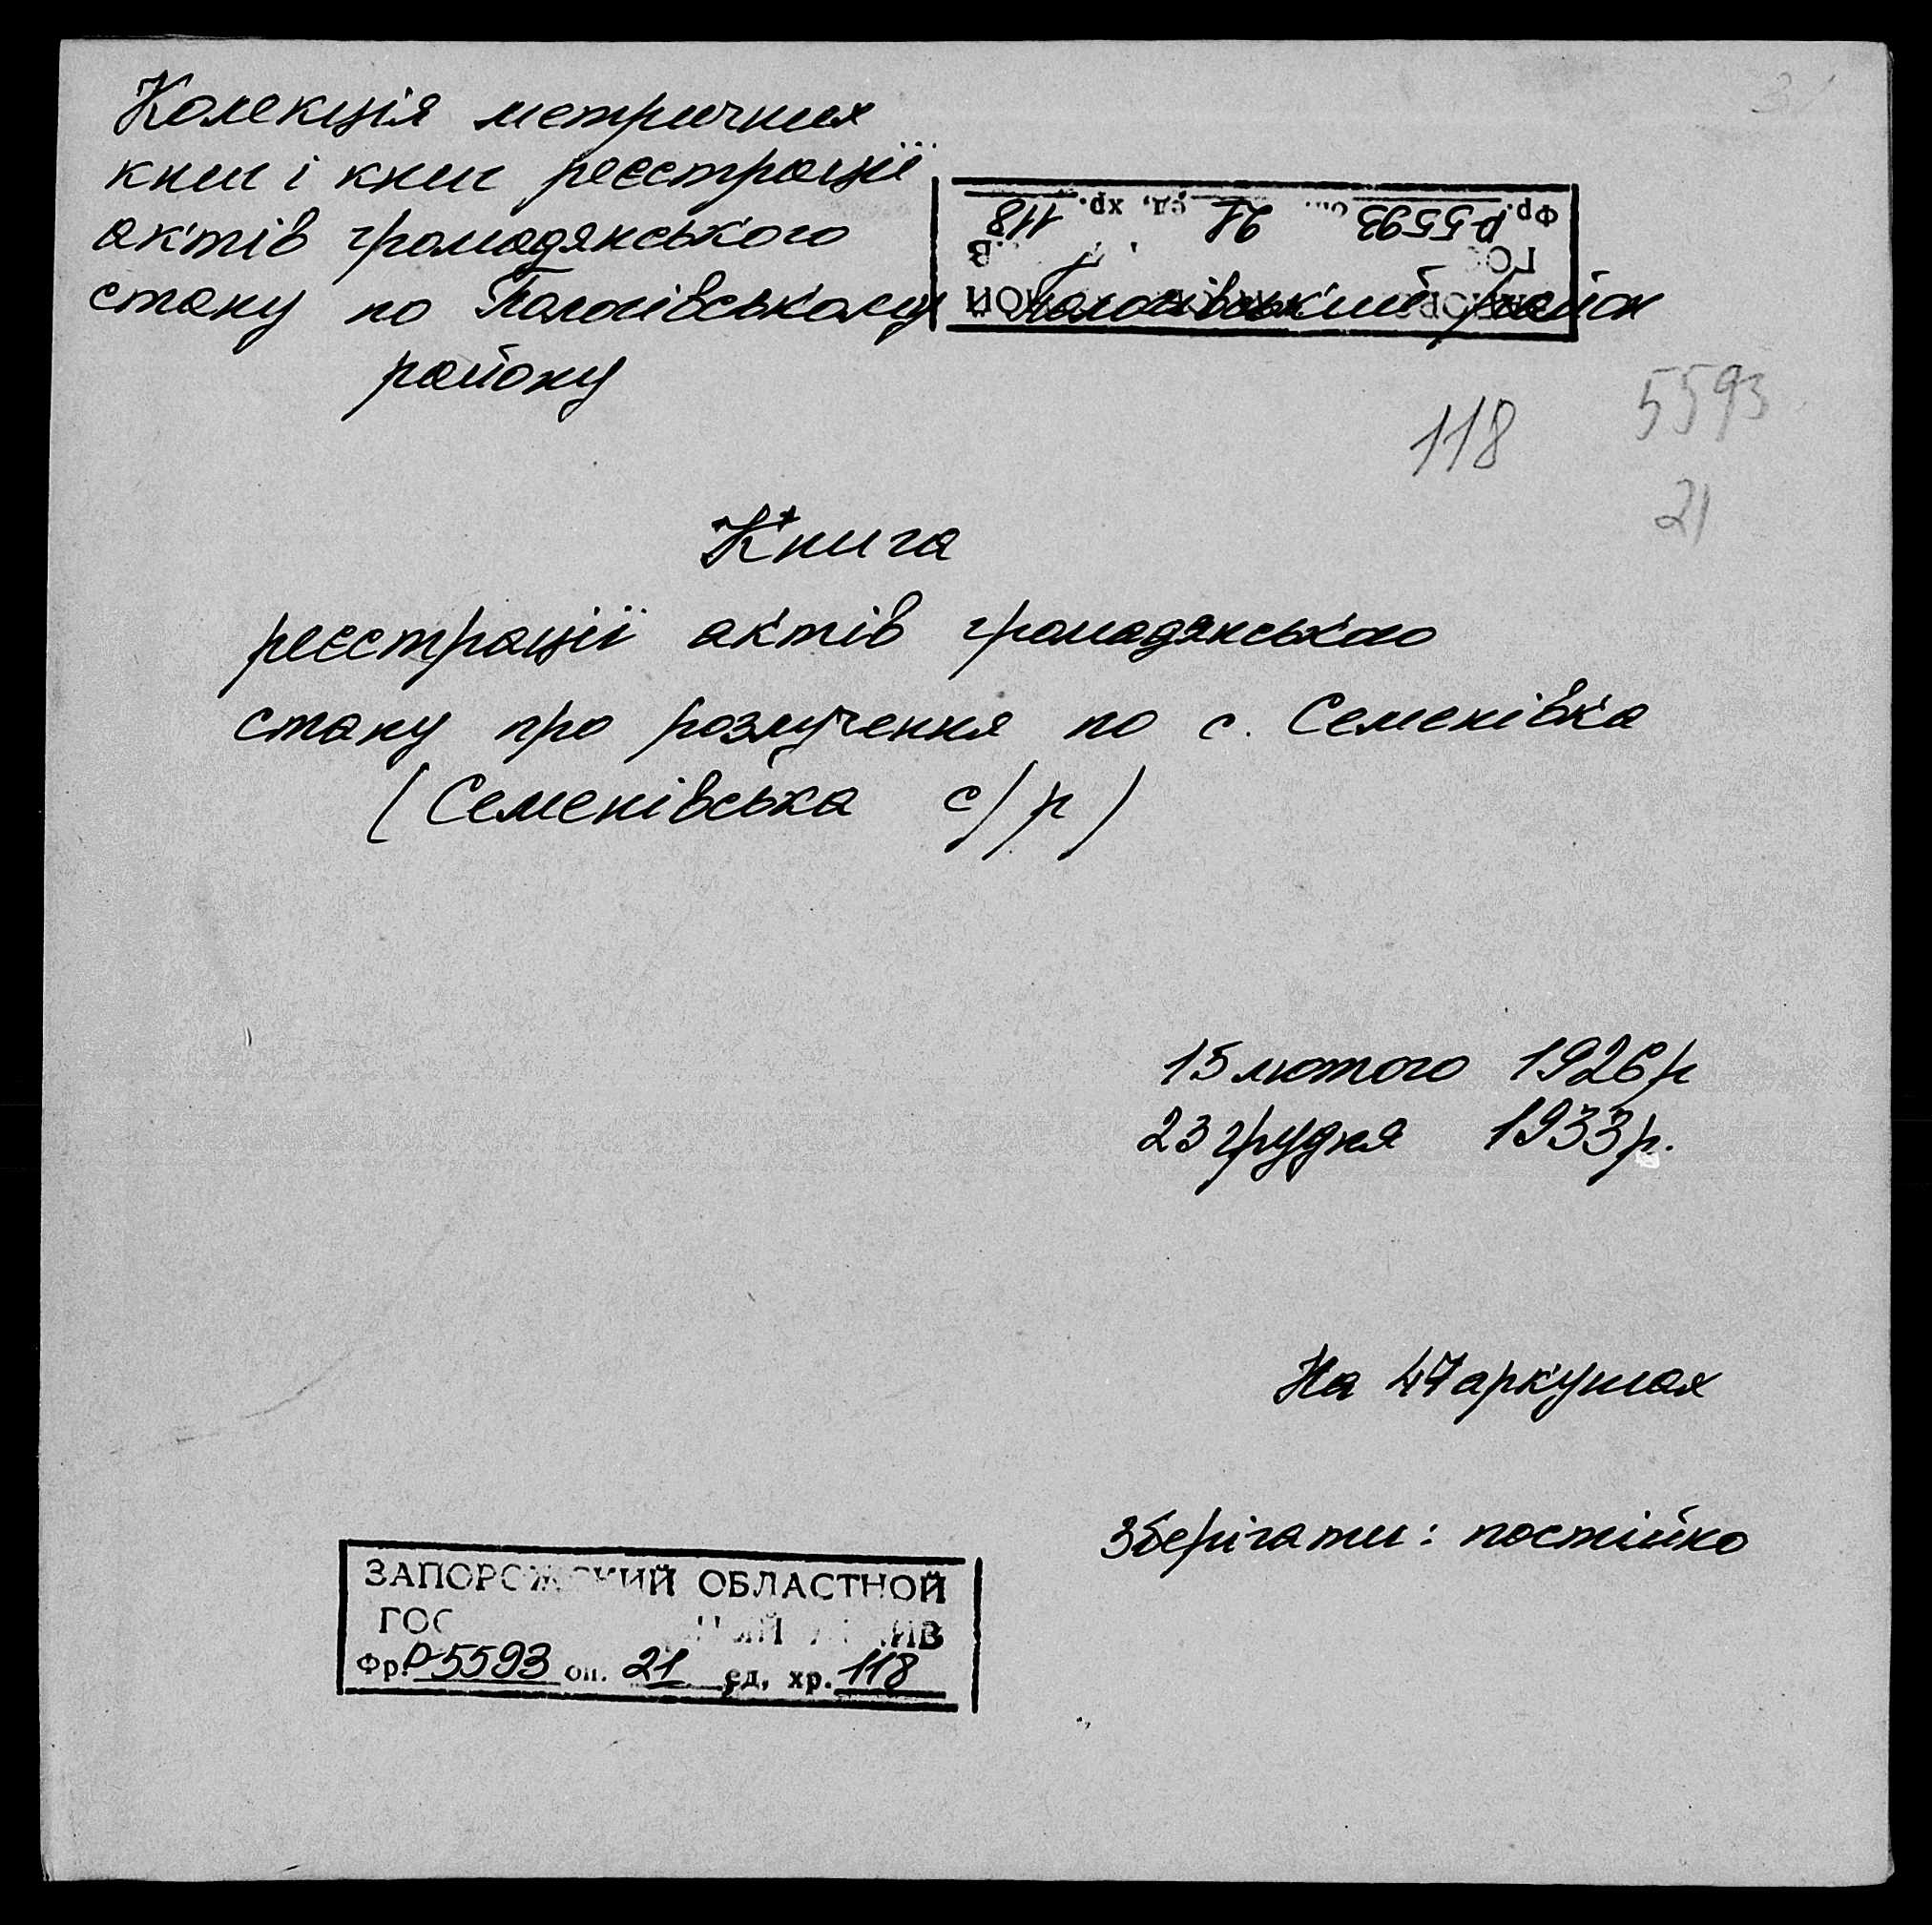 Колекція метричних
книг і книг реєстрації
актів громадянського
стану по Пологівському
району
Фр. Р-5593 оп. 21 ед. хр. 118
Пологівський район
118
5593
21
Книга
реєстрації актів громадянського
стану про розлучення по с. Семенівка
(Семенівська с/р)
15 лютого 1926р
23 грудня 1933р.
На 47 аркушах
Зберігати: постійно
ЗАПОРОЖСКИЙ ОБЛАСТНОЙ
Фр. Р-5593 оп. 21 ед. хр. 118